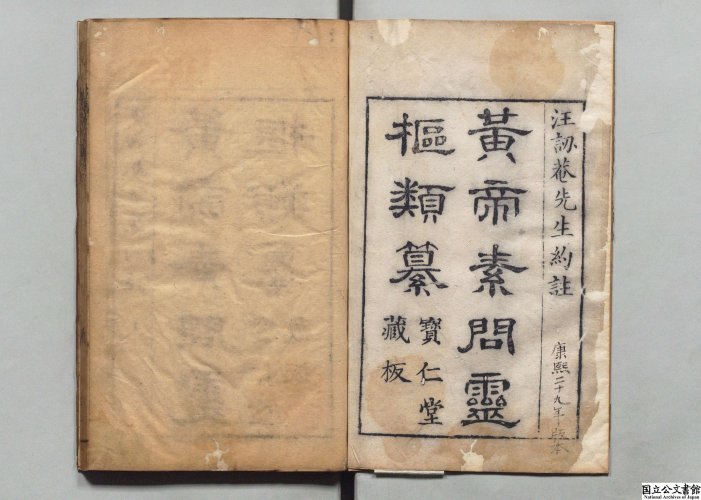 汪訒菴先生約註
康熙二十九年版本
黃帝素問靈
樞類纂
寶仁堂
藏板
国立公文書館
National Archives of Japan